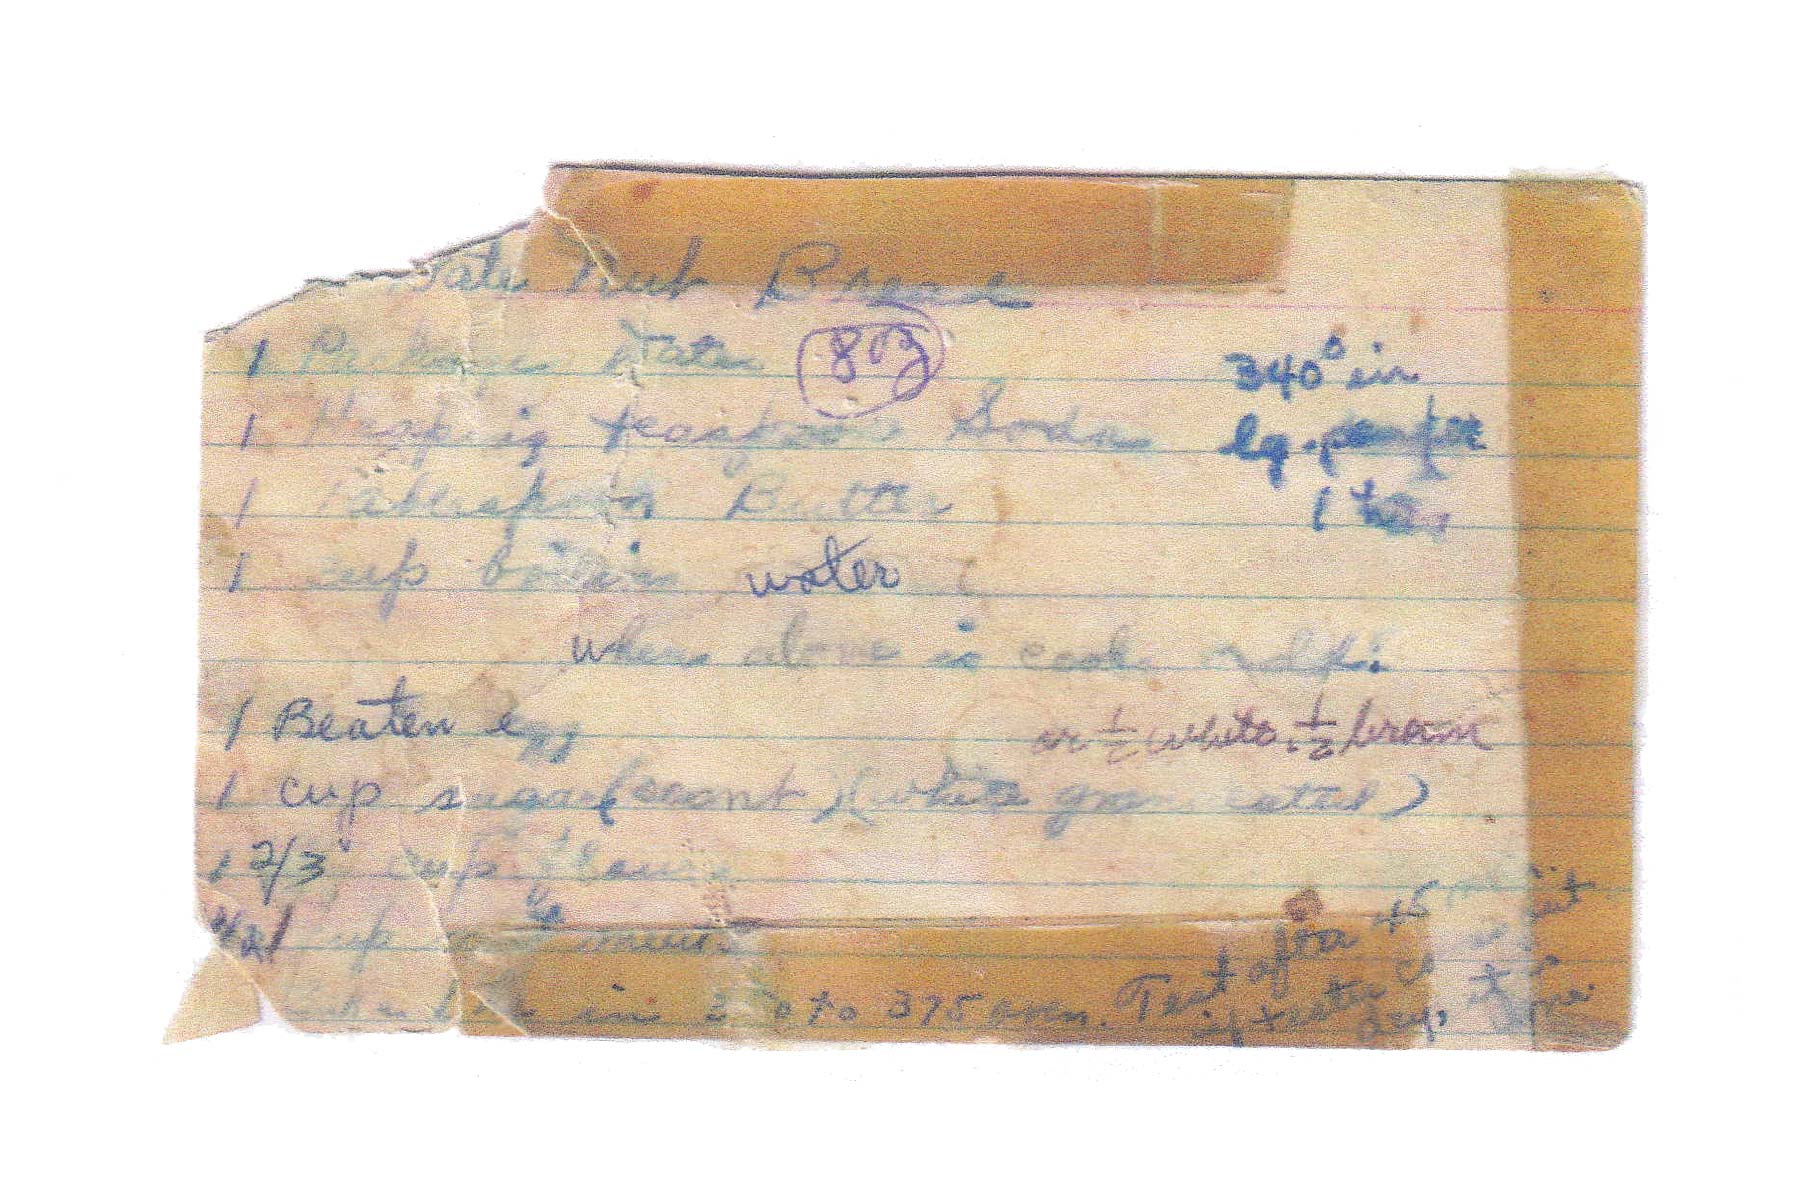 Date Nut Bread
1 Package Dates (8 oz)
340° in
1 Heaping teaspoon Soda
lg. pan for
1 Tablespoon Butter
1 hr.
1 cup boiling water
when above is cool add:
1 Beaten egg
or ½ white, ½ brown
1 cup sugar (scant) (white granulated)
1 2/3 cup flour
cup nut meats
in 350 to 375 oven. Test after 45
if tester is dry, it is done.